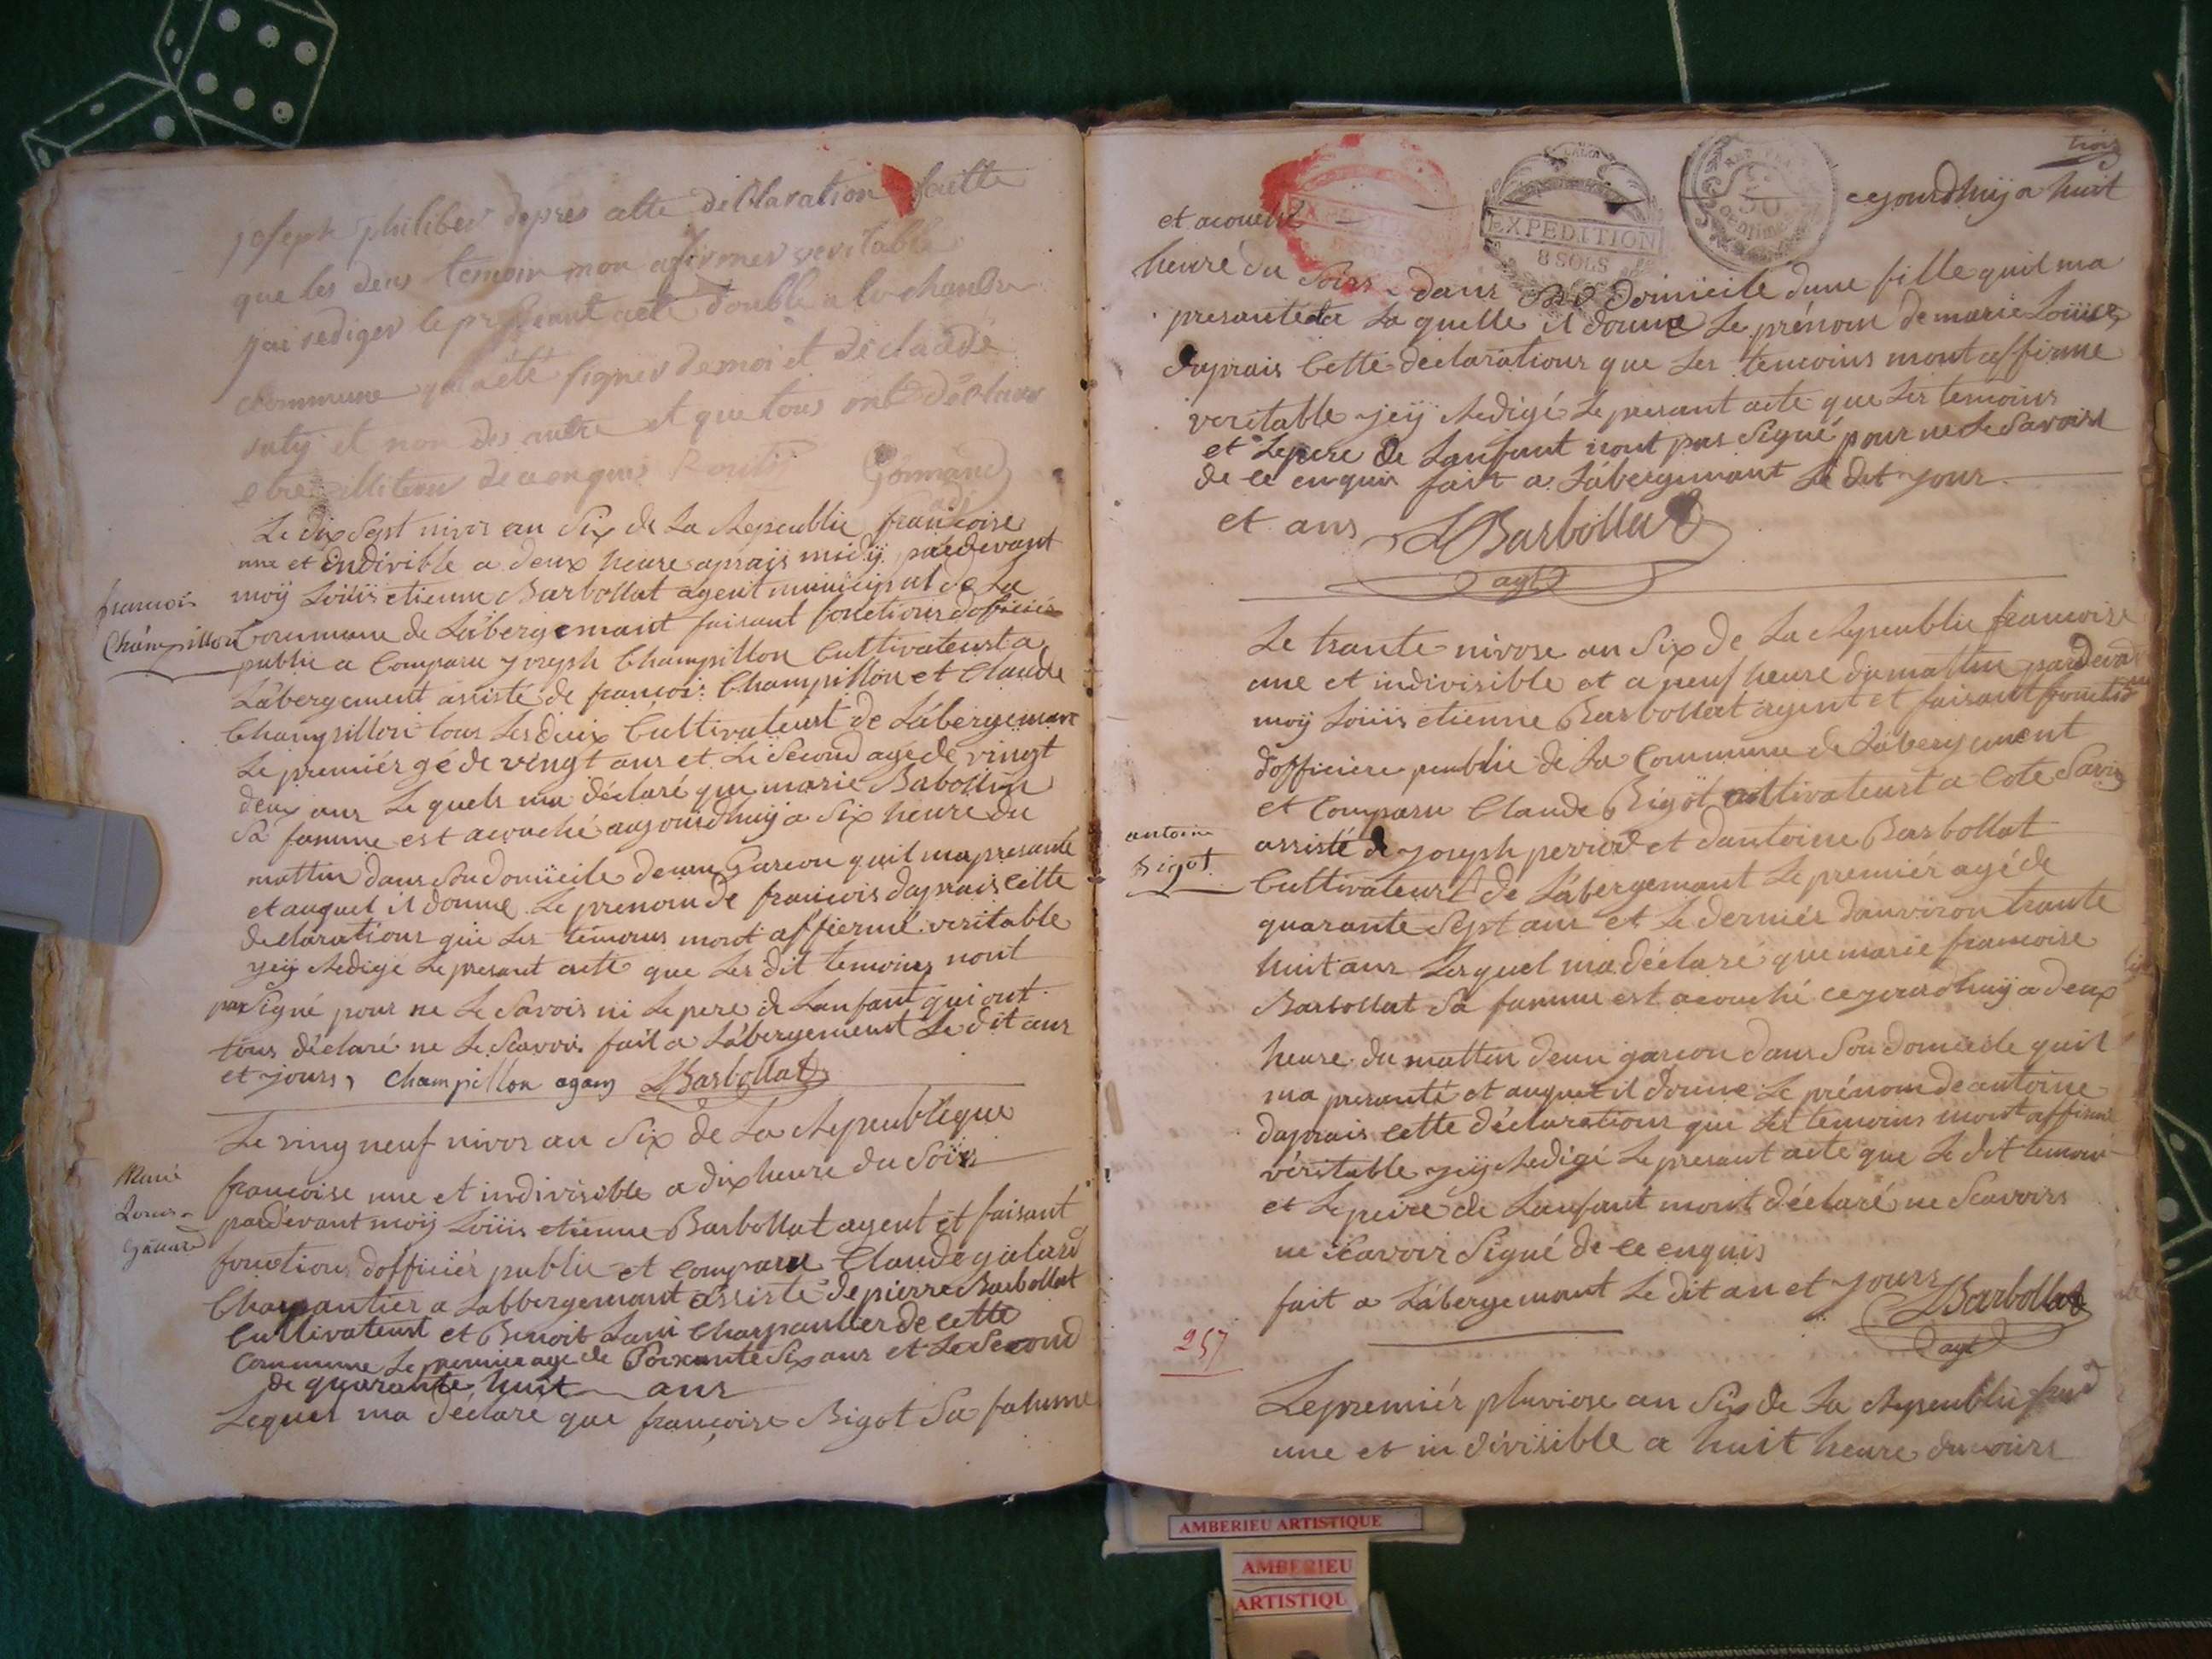 josept philiber depres cette deblaration faitte
que les deus temoin mon afirmer veritable
jai rediger le present acte double a la chambre
commune qui a été signer de moi et de claude
suty et non des autre et que tous ont déblarer
etre illiteré de ce enquis Gormand
Le dix sept nivos an Six de La Republic francoise
une et indivible a deux heure aprais midÿ pardevant
francois
moÿ Loüis etienne Barbollat agent municipal de La
Champillon
Commune de Labergemant faisant fonctions doficié
public a Comparu joseph Champillon Cultivateurt a
Labergement assisté de francois Champillon et Claude
Champillon tous Les deux Cultivateurt de Labergemant
Le premiér gé de vengt ans et Le Second agé de vingt
deux ans Le quels ma déclaré que marie Babollin
Sa famme est acouché aujourdhuÿ a Six heure du
mattin dans Son domicile deun Garcon quil ma presanté
et auquel il donne Le prenom de francois daprais cette
declarations que Les témoins mont affiermé veritable
jeÿ Redigé Le presant acte que Les dit temoins nont
pas Signé pour ne Le Savoir ni Le pere de Lanfant qui ont
tous déclaré ne Le Scavoir fait a Labergement Le dit ans
et jours, Champillon agam LBarbollat
Le ving neuf nivos an Six de La Republique
francoise une et indivisible a dix heure du Soir
marie
Louise
Galard
pardevant moÿ Loüis etienne Barbollat agent et faisant
fonction dofficiér public et comparu Claude galard
Charpantier a Labbergemant assisté de pierre Barbollat
Cultivateurt et Benoit Lani Charpantier de cette
Commune Le premier agé de Soixante Six ans et Le Second
de quarante huit ans
Lequel ma déclaré que françoise Bigot Sa famme
trois
EXPEDITION
8 SOLS
50
Centimes
et acouché cejourdhuÿ a huit
heure du Soirs dans Son domicile dune fille quil ma
presantéla La quelle il donne Le prénom de marie Louise
daprais Cette declarations que Les temoins mont affirmé
veritable jeÿ Redigé Le presant acte que Les temoins
et Le pere de Lanfant nont pas Signé pour ne Le Savoir
de ce enquir fait a Labergemant Le dit jour
et ans LBarbollat
agt
Le trante nivose an Six de La Republic francoise
une et indivisible et a neuf heure du mattin pardevant
moÿ Loüis etienne Barbollat agent et faisant fonction
dofficiere public de La Commune de Labergement
et Comparu Claude Bigot cultivateurt a Cote Savin
antoine
Bigot
assisté de joseph perrier et dantoine Barbollat
Cultivateurt de Labergemant Le premiér agé de
quarante Sept ans et Le derniér danviron trante
huit ans Lesquel ma déclaré que marie francoise
Barbollat Sa famme est acouché cejourdhuÿ a deux
heure du mattin deun garcon dans Son domicile quil
ma presanté et auquel il donne Le prénom de antoine
daprais cette déclarations que Les temoins mont affirmé
véritable jeÿ Redigé Le presant acte que Le dit temoin
et Le peire de Lanfant mont déclaré ne Scavoirs
ne Scavoir Signé de ce enquis
fait a Labergemant Le dit an et jours LBarbollat
agt
257
Le premiér pluviose an Six de La Republic
une et indévisible a huit heure du soirs
AMBERIEU ARTISTIQUE
AMBERIEU
ARTISTIQU